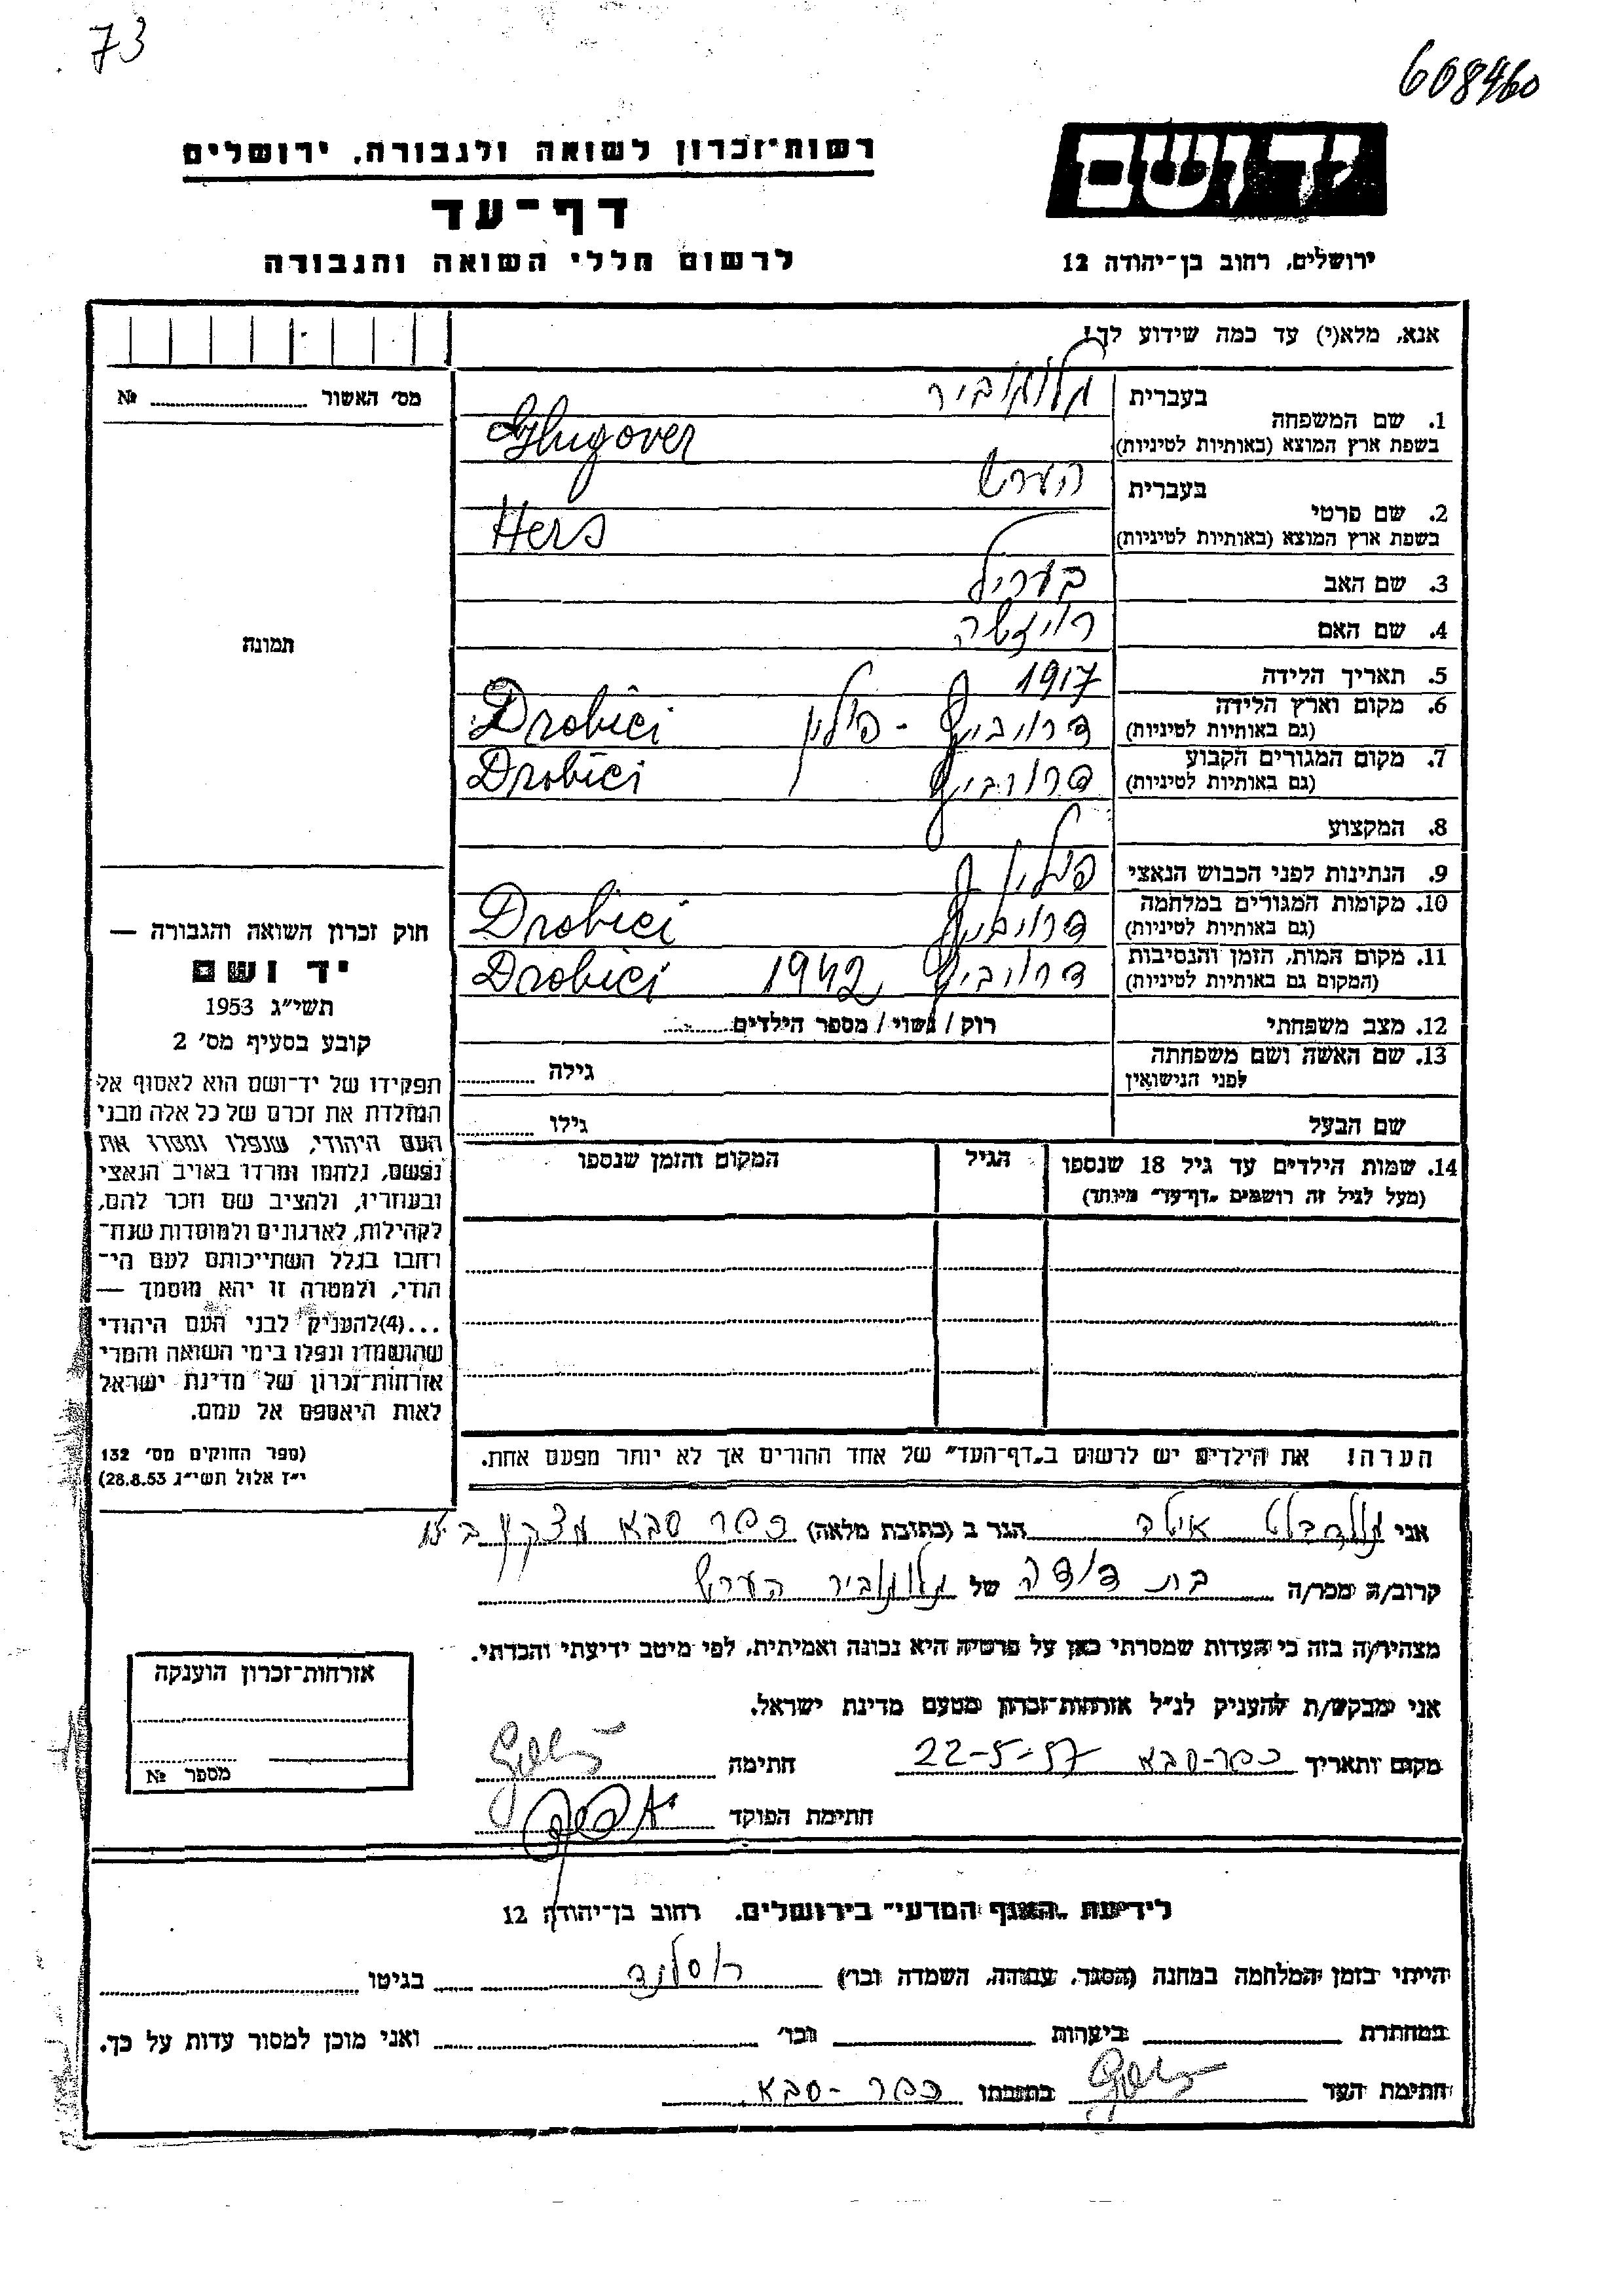 73
608460
רשות־זכרון לשואה ולגבורה, ירושלים
יד ושם
דף־עד
לרשום חללי השואה והגבורה
ירושלים, רחוב בן־יהודה 12
אנא, מלא(י) עד כמה שידוע לך!
מס׳ האשור № 
1. שם המשפחה בעברית גלוגוביר
בשפת ארץ המוצא (באותיות לטיניות) Glugover
2. שם פרטי בעברית הערש
בשפת ארץ המוצא (באותיות לטיניות) Hers
3. שם האב בעריל
4. שם האם
5. תאריך הלידה 1917
6. מקום וארץ הלידה (גם באותיות לטיניות) דרוביץ - פולין Drobici
7. מקום המגורים הקבוע (גם באותיות לטיניות) דרוביץ Drobici
8. המקצוע
9. הנתינות לפני הכבוש הנאצי
10. מקומות המגורים במלחמה (גם באותיות לטיניות) דרוביץ Drobici
11. מקום המות, הזמן והנסיבות (המקום גם באותיות לטיניות) דרוביץ 1942 Drobici
12. מצב משפחתי רוק / נשוי / מספר הילדים
13. שם האשה ושם משפחתה לפני הנישואין גילה
שם הבעל גילו
14. שמות הילדים עד גיל 18 שנספו הגיל המקום והזמן שנספו
(מעל לגיל זה רושמים „דף־עד״ מיוחד)
תמונה
חוק זכרון השואה והגבורה —
יד ושם
תשי״ג 1953
קובע בסעיף מס׳ 2
תפקידו של יד־ושם הוא לאסוף אל
המולדת את זכרם של כל אלה מבני
העם היהודי, שנפלו ומסרו את
נפשם, נלחמו ומרדו באויב הנאצי
ובעוזריו, ולהציב שם וזכר להם,
לקהילות, לארגונים ולמוסדות שנח־
רחבו בגלל השתייכותם לעם הי־
הודי, ולמטרה זו יהא מוסמך —
...(4) להעניק לבני העם היהודי
שהושמדו ונפלו בימי השואה והמרי
אזרחות־זכרון של מדינת ישראל
לאות היאספם אל עמם.
(ספר החוקים מס׳ 132
י״ז אלול תשי״ג 28.8.53)
הערה! את הילדים יש לרשום ב„דף־העד״ של אחד ההורים אך לא יותר מפעם אחת.
אני גולדבלט הגר ב (כתובת מלאה) כפר סבא
קרוב/ה מכר/ה בת דודה של גלוגוביר הערש
מצהיר/ה בזה כי העדות שמסרתי כאן על פרטיה היא נכונה ואמיתית, לפי מיטב ידיעתי והכרתי.
אני מבקש/ת להעניק לנ״ל אזרחות־זכרון מטעם מדינת ישראל.
מקום ותאריך כפר-סבא 22-5-57 חתימה
חתימת הפוקד
אזרחות־זכרון הוענקה
מספר №
לידיעת „האגף המדעי״ בירושלים, רחוב בן־יהודה 12
הייתי בזמן המלחמה במחנה (הסגר, עבודה, השמדה וכו׳) רוסלנד בגיטו
במחתרת ביערות וכו׳ ואני מוכן למסור עדות על כך.
חתימת העד כתובתו כפר-סבא